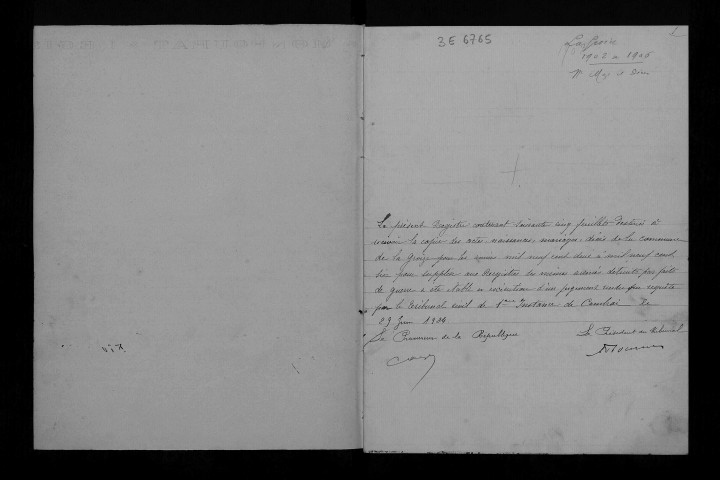 1
3E 6765
La Groise
1902 à 1906
N. M. et D
Le présent Registre contenant soixante cinq feuillets destiné à
recevoir la copie des actes naissances, mariages, décès de la commune
de la Groise pour les années mil neuf cent deux à mil neuf cent
six pour suppléer aux Registres des mêmes années détruits par faits
de guerre a été établi en exécution d'un jugement rendu sur requête
par le tribunal civil de 1ère Instance de Cambrai le
27 Juin 1924
Le Procureur de la République
Le Président du tribunal